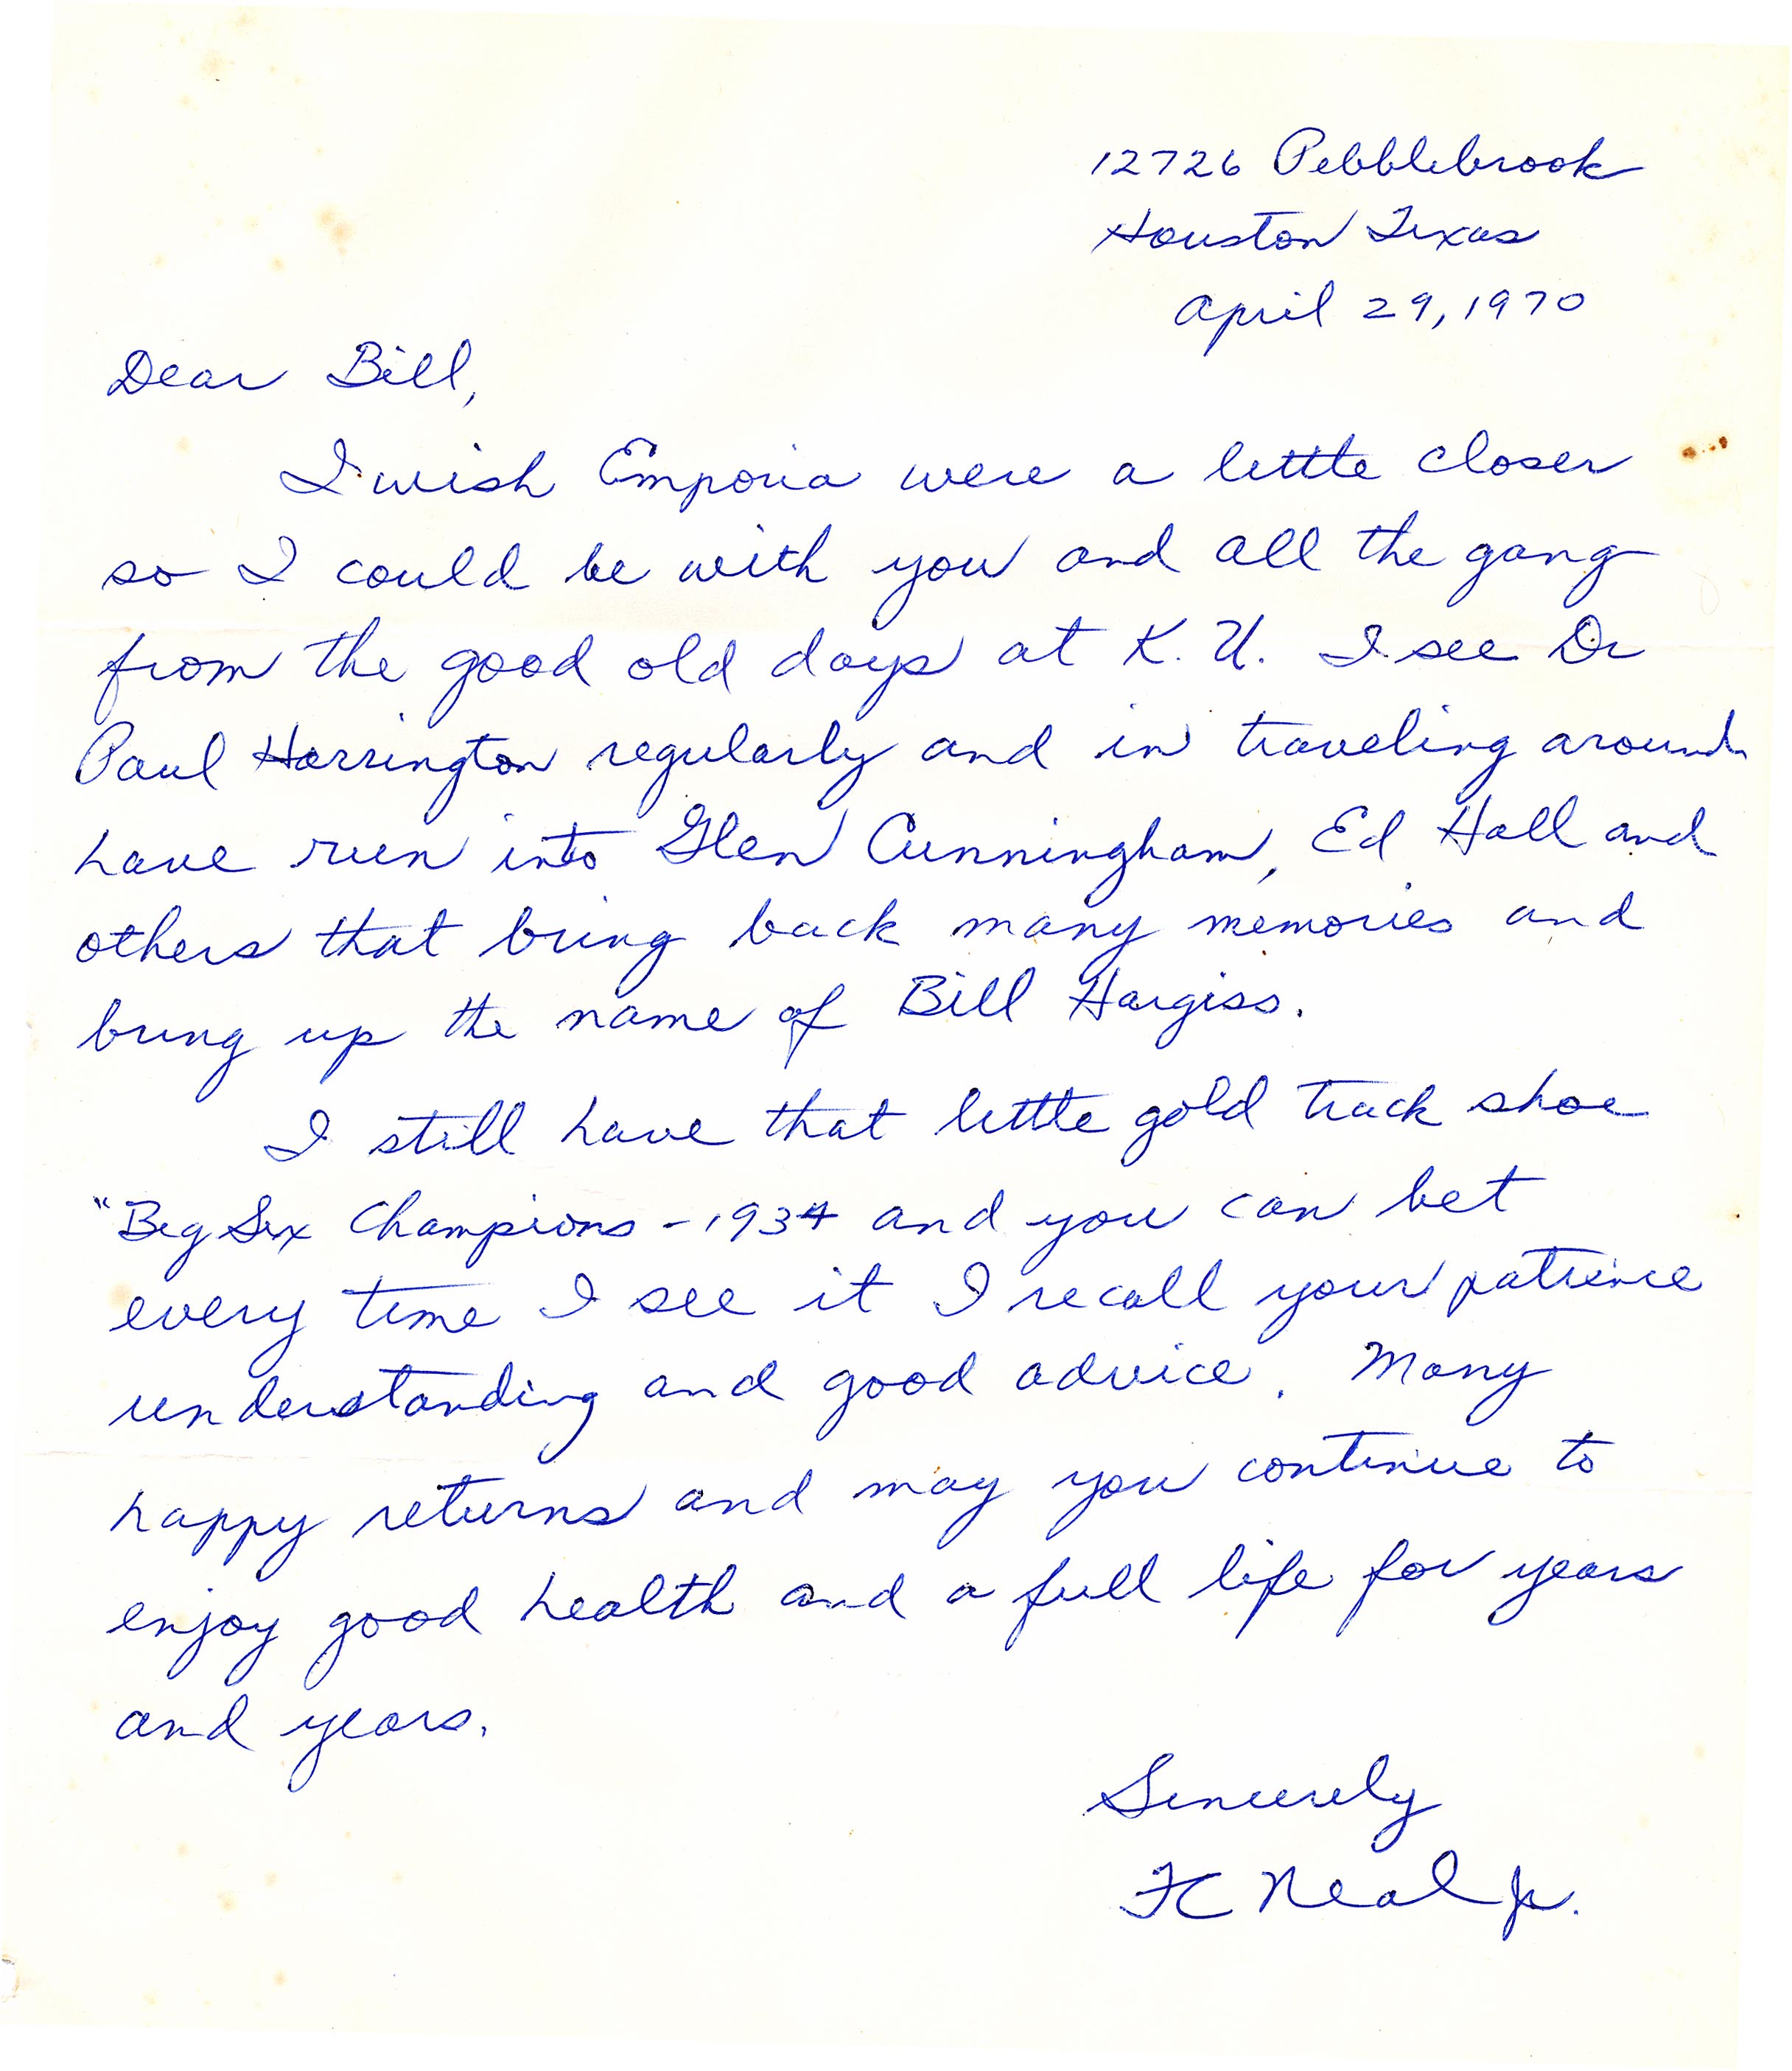 12726 Pebblebrook
Houston Texas
April 29, 1970
Dear Bill,
I wish Emporia were a little closer
so I could be with you and all the gang
from the good old days at K. U. I see Dr
Paul Harrington regularly and in traveling around
have run into Glen Cunningham, Ed Hall and
others that bring back many memories and
bring up the name of Bill Hargiss.
I still have that little gold track shoe
"Big Six Champions - 1934 and you can bet
every time I see it I recall your patience
understanding and good advice. Many
happy returns and may you continue to
enjoy good health and a full life for years
and years.
Sincerely
FC Neal Jr.